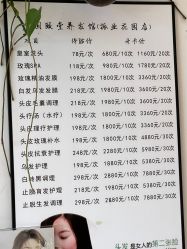 颐養堂养发馆(振业花园店)
项目 体验价 会员卡价
皇室洗头 78元/次 680元/10次 1160元/20次
玫瑰SPA 118元/次 980元/10次 1880元/20次
玫瑰精油发膜 198元/次 1800元/10次 3360元/20次
白发乌发发膜 198元/次 1800元/10次 3360元/20次
头皮毛囊调理 218元/次 1980元/10次 3880元/20次
头疗汤(水疗) 198元/次 1800元/10次
头皮理疗护理 198元/次 1800元/10次
头皮玫瑰补水 198元/次 1800元/10次
头皮抗衰护理 298元/次 2680元/10次
乌发护理 298元/次 2680元/10次
白转黑调理 298元/次 2680元/10次
止脱育发护理 298元/次 7880元/30次
止脱生发调理 298元/次 7880元/30次
头发是女人的第二张脸